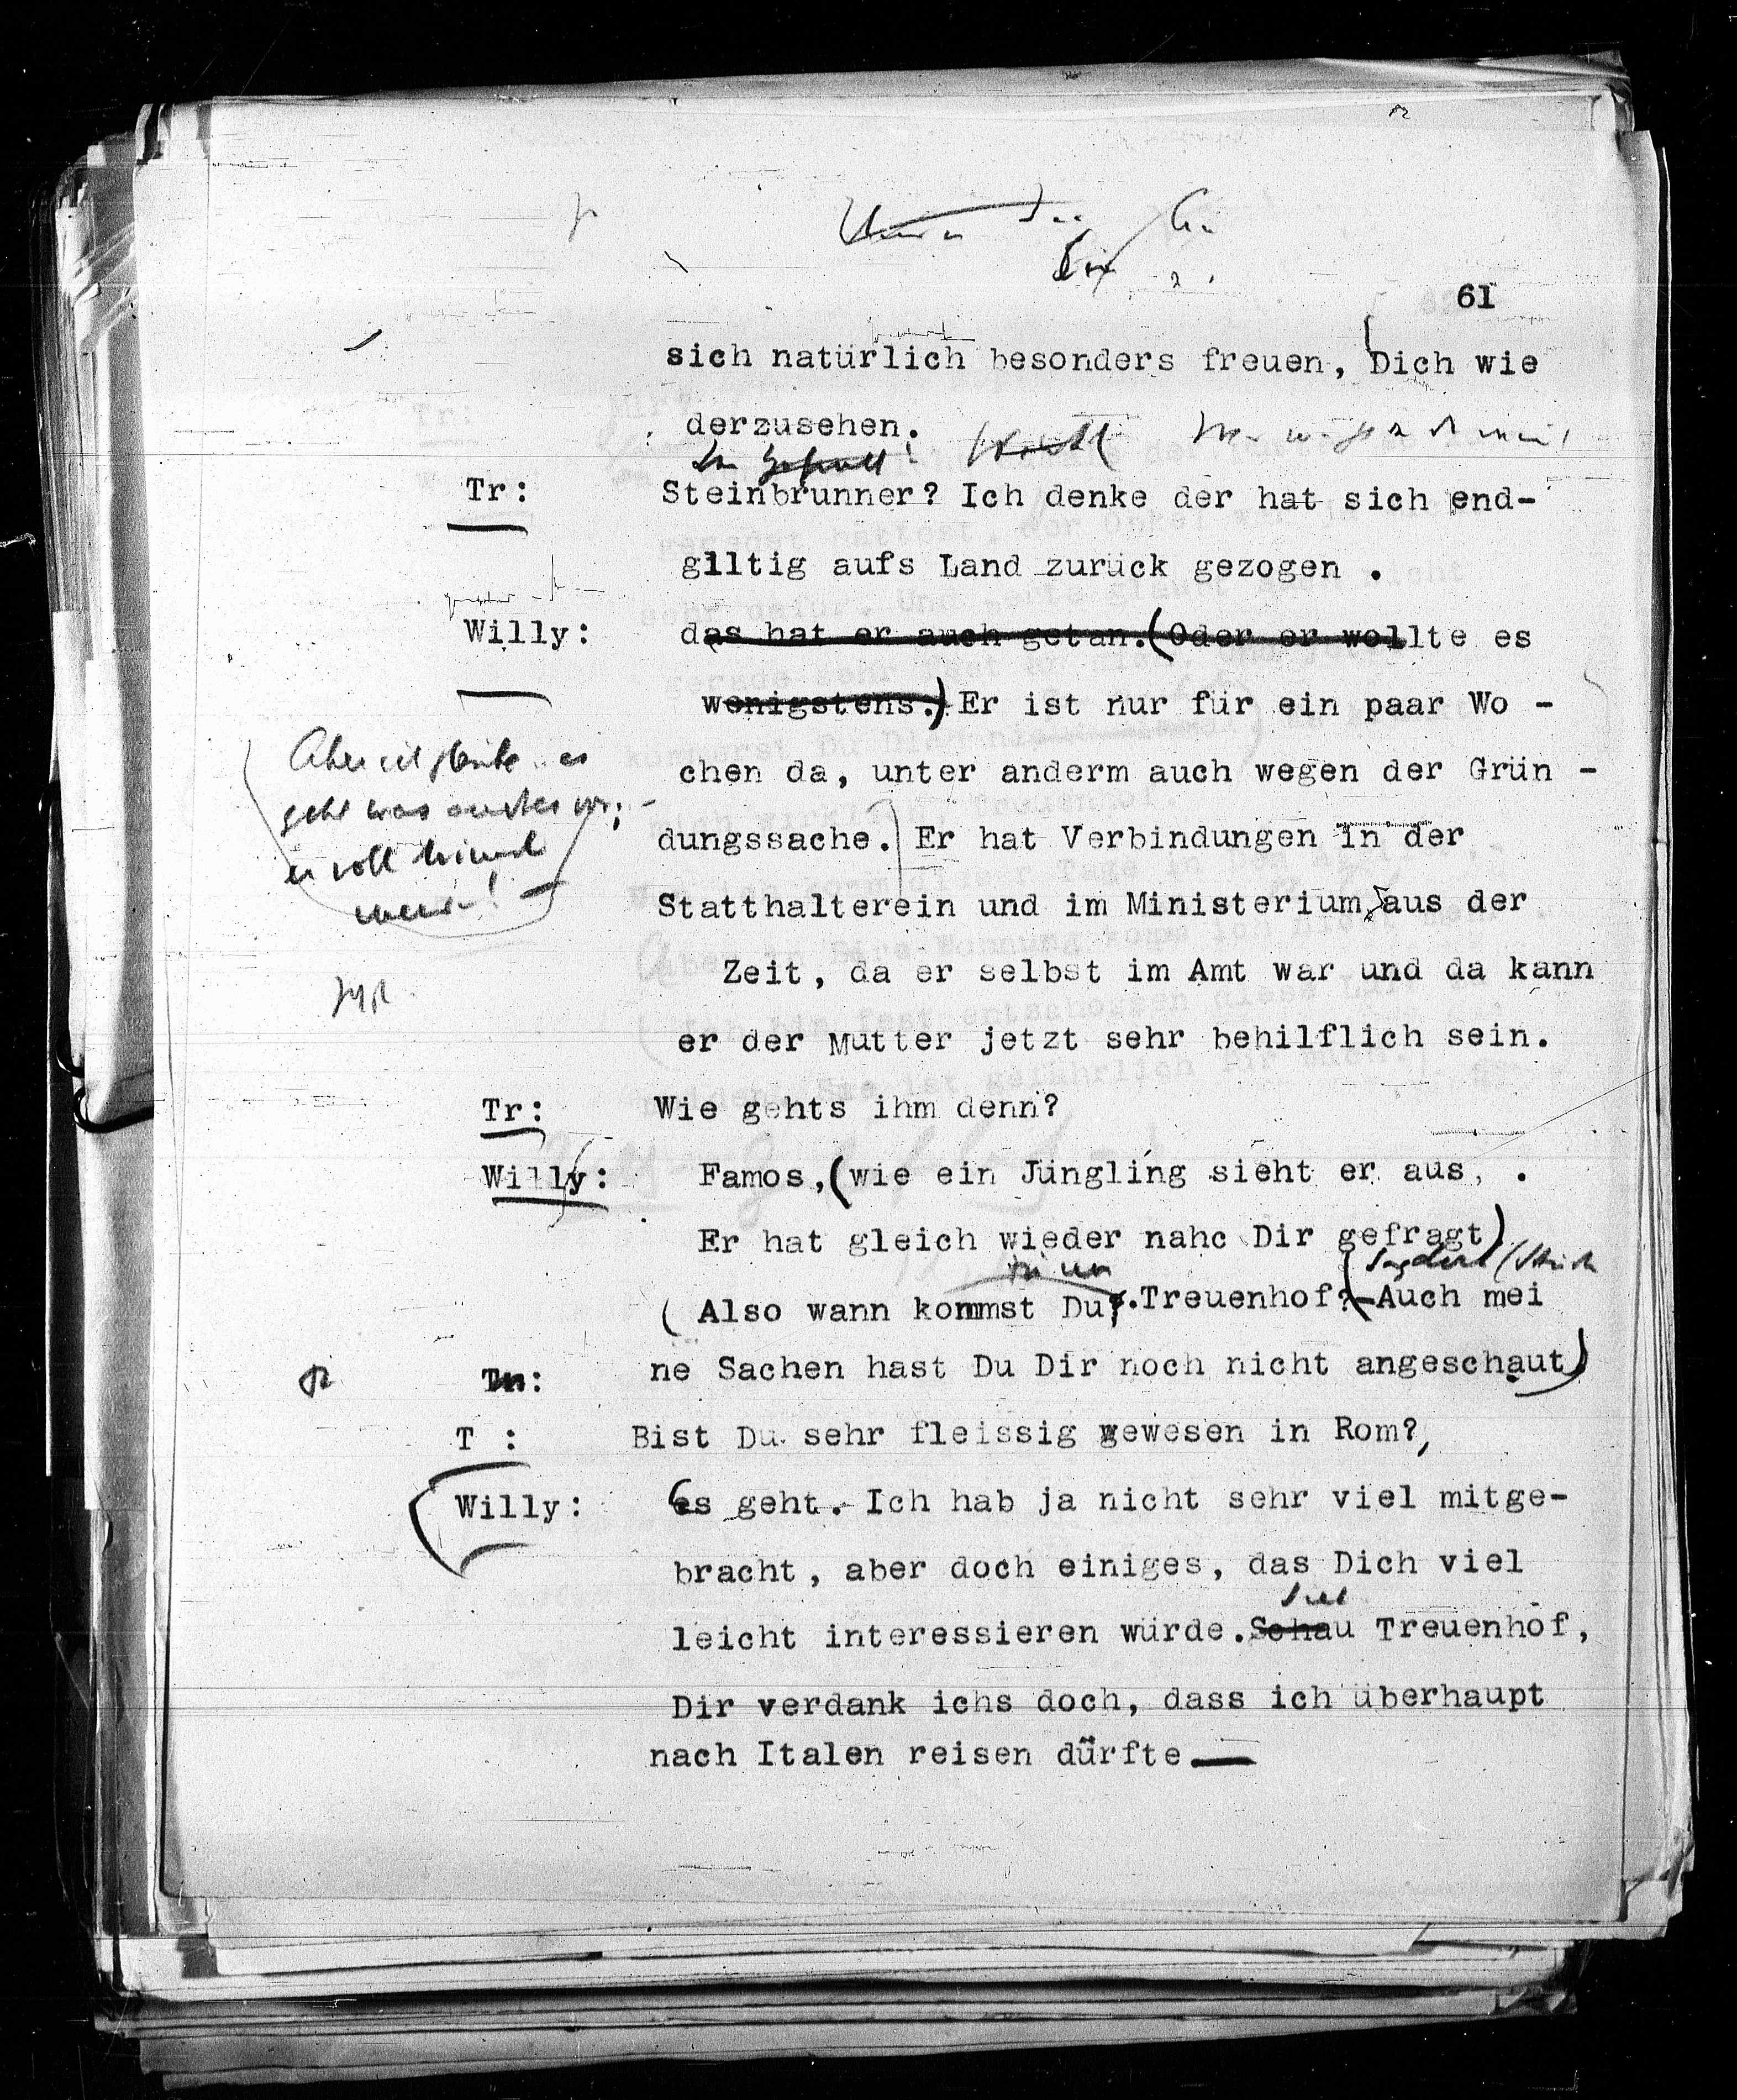 61
sich natürlich besonders freuen, Dich wie
derzusehen.
Tr: Steinbrunner? Ich denke der hat sich end-
giltig aufs Land zurück gezogen .
Willy: das hat er auch getan.(Oder er wollte es
wenigstens.) Er ist nur für ein paar Wo -
Aber ich glaube.. es
chen da, unter anderm auch wegen der Grün -
geht was anderes vor;
dungssache. Er hat Verbindungen in der
er soll
Statthalterein und im Ministerium, aus der
Zeit, da er selbst im Amt war und da kann
er der Mutter jetzt sehr behilflich sein.
Tr: Wie gehts ihm denn?
Willy: Famos,(wie ein Jüngling sieht er aus, .
Er hat gleich wieder nahc Dir gefragt)
(Also wann kommst Du?.Treuenhof?(-Auch mei
ne Sachen hast Du Dir noch nicht angeschaut)
T : Bist Du sehr fleissig gewesen in Rom?,
(Willy: es geht.- Ich hab ja nicht sehr viel mitge-
bracht, aber doch einiges, das Dich viel
leicht interessieren würde.Schau Treuenhof,
Dir verdank ichs doch, dass ich überhaupt
nach Italen reisen dürfte—